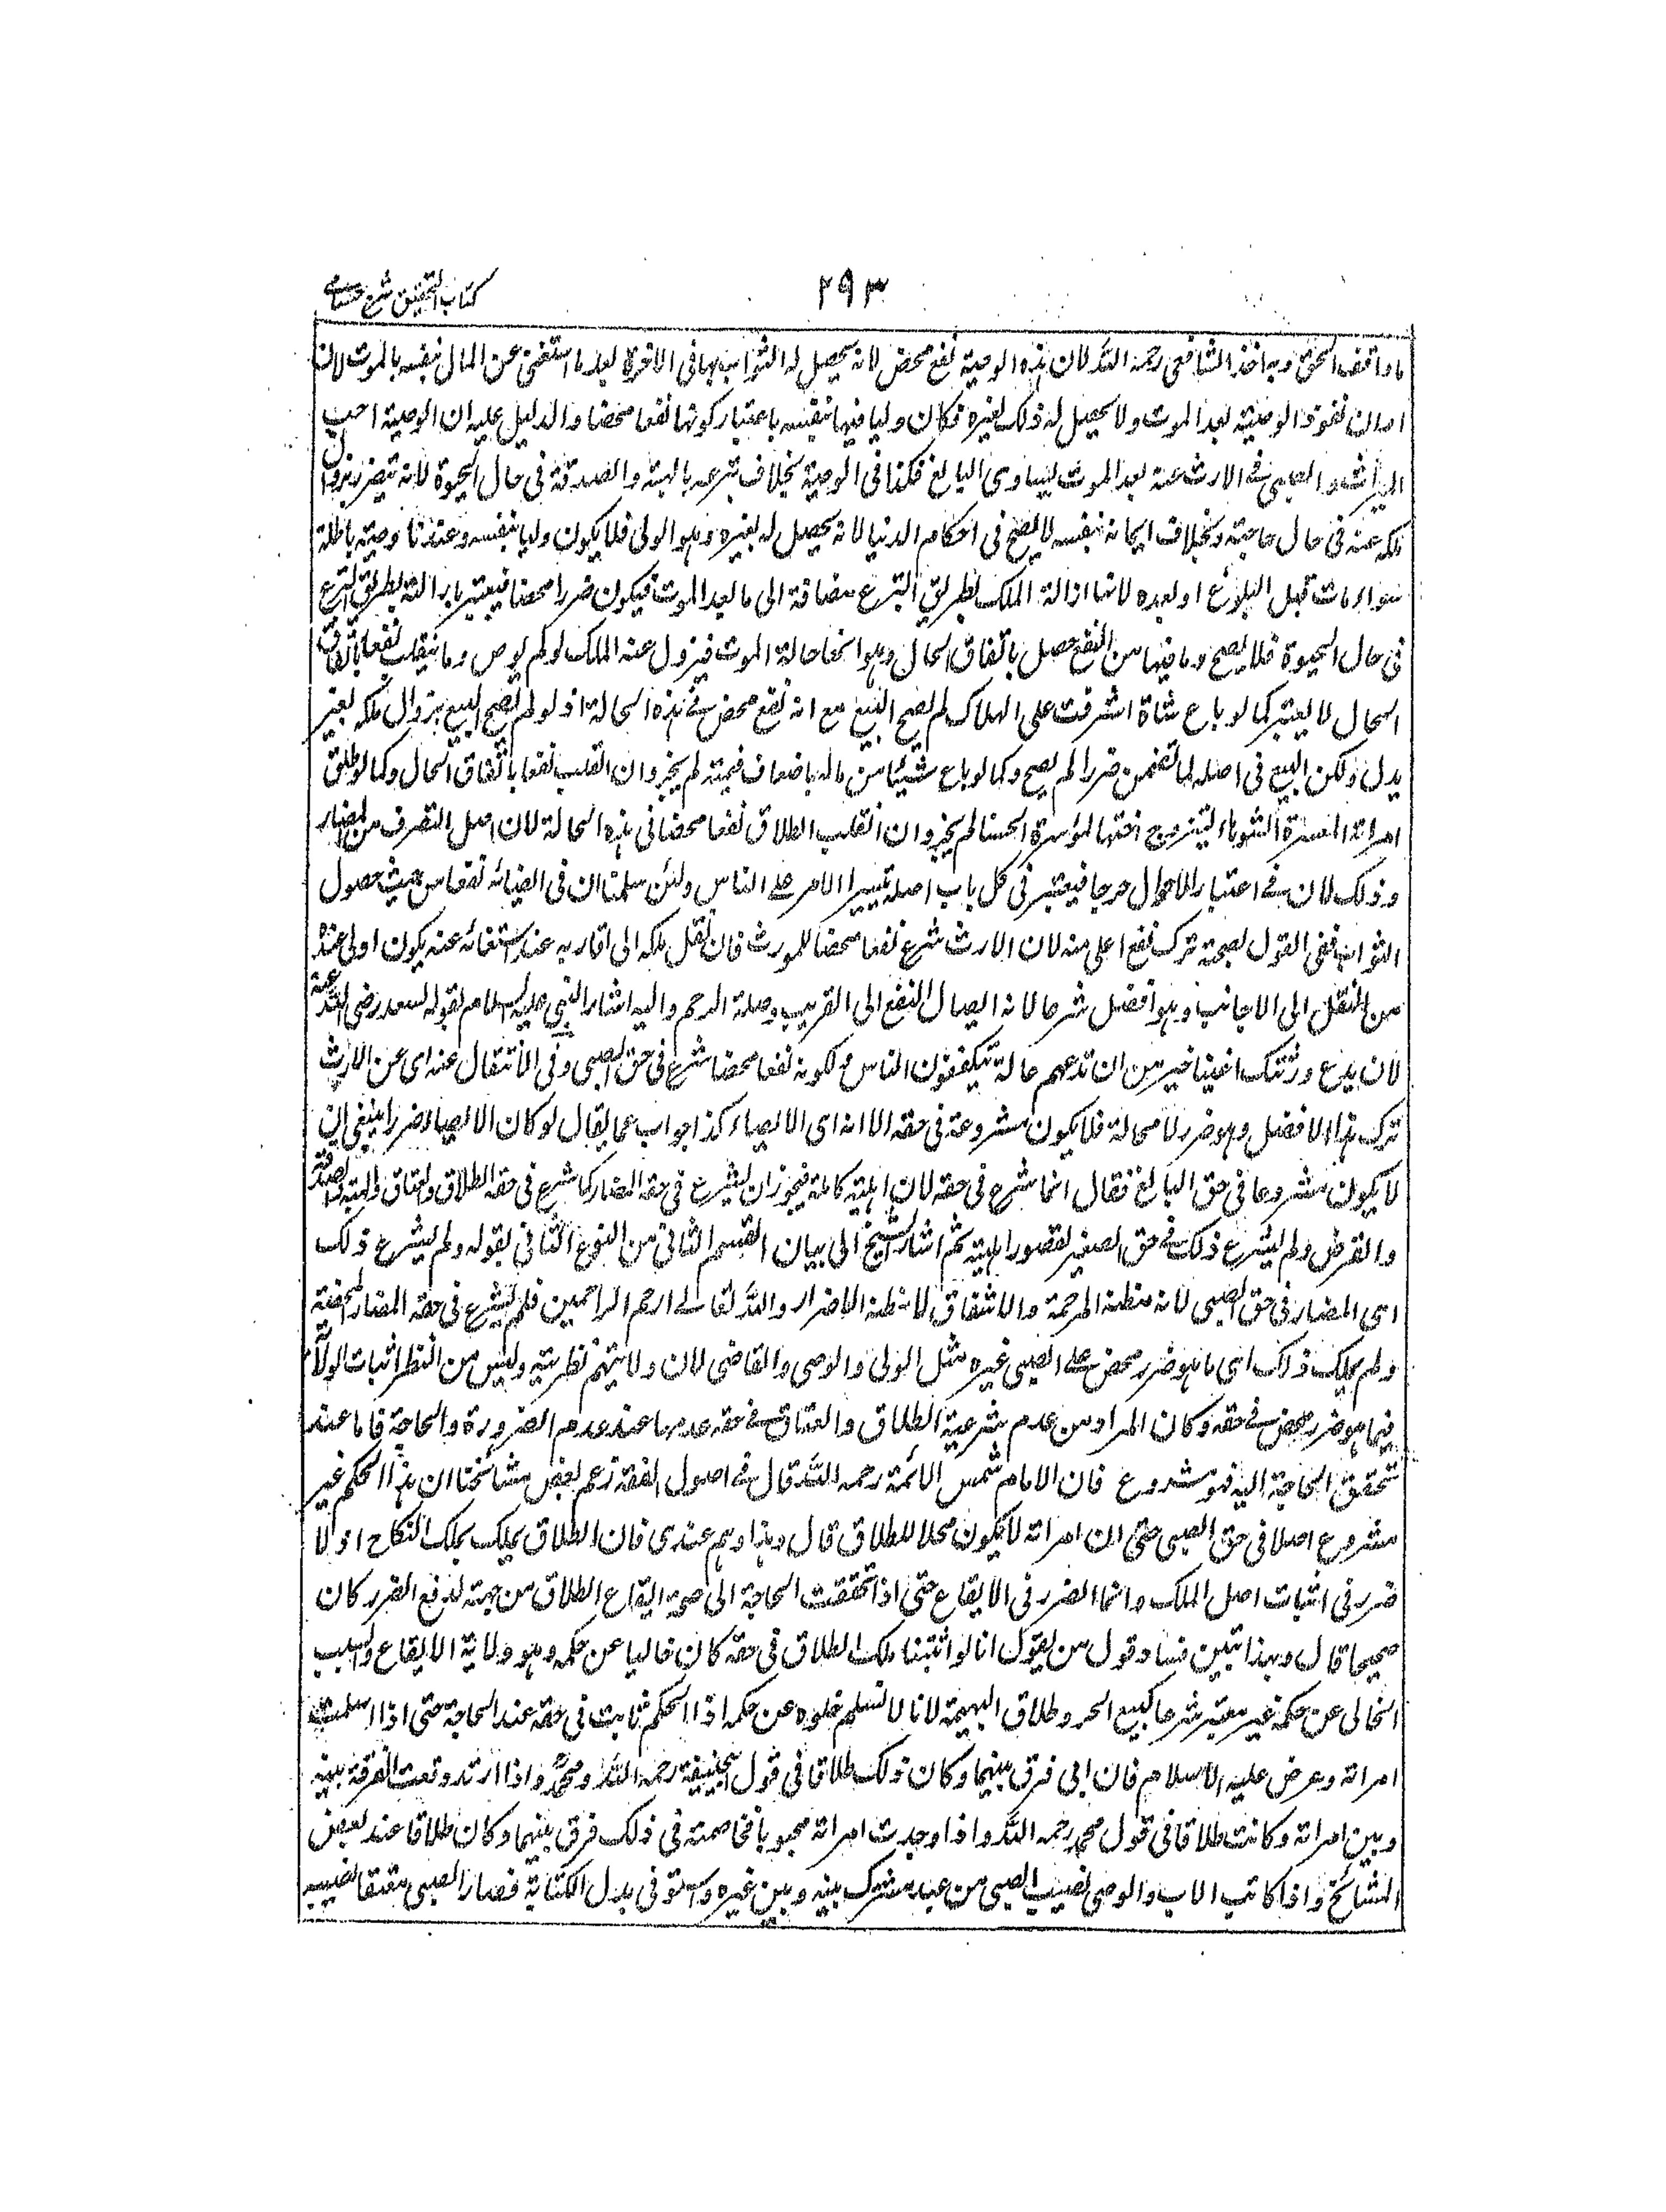 كتاب التحقيق شرح حسامى
٢٩٣
ما وافق الحق وبه اخذ الشافعى رحمه الله لان هذه الوصية نفع محض لانه يحصل له الثواب بها فى الاخرة بعد ما استغنى عن المال بنفسه بالموت لان
اوان نفوذ الوصية بعد الموت ولا يحصل له ذلك لغيره فكان وليا فيها بنفسه باعتبار كونها نفعا محضا والدليل عليه ان الوصية اخت
الميراث والصبى فى الارث عنه بعد الموت يساوى البالغ فكذا فى الوصية بخلاف تبرعه بالهبة والصدقة فى حال الحيوة لانه يتضرر بزوال
ملكه عنه فى حال حاجته وبخلاف ايمانه بنفسه لا يصح فى احكام الدنيا لانه يحصل له بغيره وهو الولى فلا يكون وليا بنفسه وعندنا وصيته باطلة
سواء مات قبل البلوغ او بعده لانها ازالة الملك بطريق التبرع مضافة الى ما بعد الموت فيكون ضررا محضا فيعتبر بازالته بطريق التبرع
فى حال الحيوة فلا يصح وما فيها من النفع حصل باتفاق الحال وهو انها حالة الموت فيزول عنه الملك لو لم يوص وما ينقلب نفعا باتفاق
الحال لا يعتبر كما لو باع شاة اشرفت على الهلاك لم يصح البيع مع انه نفع محض فى هذه الحالة اذ لو لم يصح البيع يزول ملكه بغير
بدل ولكن البيع فى اصله لما تضمن ضررا لم يصح وكما لو باع شيئا من ماله باضعاف قيمته لم يجز وان انقلب نفعا باتفاق الحال وكما لو طلق
امراته المعسرة الشوهاء ليتزوج اختها الموسرة الحسناء لم يجز وان انقلب الطلاق نفعا محضا فى هذه الحالة لان اصل التصرف من المضار
وذلك لان فى اعتبار الاحوال حرجا فيعتبر فى كل باب اصله تيسيرا الامر على الناس ولئن سلمنا ان فى ايصائه نفعا من حيث حصول
الثواب ففى القول بصحته ترك نفع اعلى منه لان الارث شرع نفعا محضا للمورث فان نقل ملكه الى اقاربه عند استغنائه عنه يكون اولى عنده
من النقل الى الاجانب وهو افضل شرعا لانه ايصال النفع الى القريب وصلة الرحم واليه اشار النبى عليه السلام بقوله لسعد رضى الله عنه
لان يدع ورثتك اغنيا خير من ان تدعهم عالة يتكففون الناس ولكونه نفعا محضا شرع فى حق الصبى وفى الانتقال عنه اى عن الارث
ترك هذا الافضل وهو ضرر لا محالة فلا يكون مشروعة فى حقه الا انه اى الايصاء كذا جواب عما يقال لو كان الايصاء ضررا ينبغى ان
لا يكون مشروعا فى حق البالغ فقال انما شرع فى حقه لان اهليته كاملة فيجوز ان يشرع فى حقه المضار كما شرع فى حقه الطلاق والعتاق والهبة والصدقة
والقرض ولم يشرع ذلك فى حق الصغير لقصور اهليته ثم اشار الشيخ الى بيان القسم الثانى من النوع الثانى بقوله ولم يشرع ذلك
اى المضار فى حق الصبى لانه مظنة المرحمة والاشفاق لا مظنة الاضرار والله تعالى ارحم الراحمين فلم يشرع فى حقه المضار المحضة
ولم يملك ذلك اى ما هو ضرر محض على الصبى غيره مثل الولى والوصى والقاضى لان ولايتهم نظرية وليس من النظر اثبات الولاية
فيما هو ضرر محض فى حقه وكان المراد من عدم شرعية الطلاق والعتاق فى حقه عدمها عند عدم الضرورة والحاجة فاما عند
تحقق الحاجة اليه فهو مشروع فان الامام شمس الائمة رحمه الله قال فى اصول الفقه زعم بعض مشائخنا ان هذا الحكم غير
مشروع اصلا فى حق الصبى حتى ان امراته لا يكون محلا للطلاق قال وهذا وهم عندى فان الطلاق يملك بملك النكاح اذ لا
ضرر فى اثبات اصل الملك وانما الضرر فى الايقاع حتى اذا تحققت الحاجة الى صحة ايقاع الطلاق من جهته لدفع الضرر كان
صحيحا قال وبهذا تبين فساد قول من يقول انا لو اثبتنا ملك الطلاق فى حقه كان خاليا عن حكمه وهو ولاية الايقاع والسبب
الخالى عن حكمه غير معتبر شرعا كبيع الحر وطلاق البهيمة لانا لا نسلم خلوه عن حكمه اذا الحكم ثابت فى حقه عند الحاجة حتى اذا اسلمت
امراته وعرض عليه الاسلام فان ابى فرق بينهما وكان ذلك طلاقا فى قول ابيحنيفة رحمه الله ومحمد واذا ارتد وقعت الفرقة بينه
وبين امراته وكانت طلاقا فى قول محمد رحمه الله واذا وجدت امراته مجبوبا فخاصمته فى ذلك فرق بينهما وكان طلاقا عند بعض
المشائخ واذا كاتب الاب والوصى نصيب الصبى من عبد مشترك بينه وبين غيره واستوفى بدل الكتابة فصار الصبى معتقا نصيبه